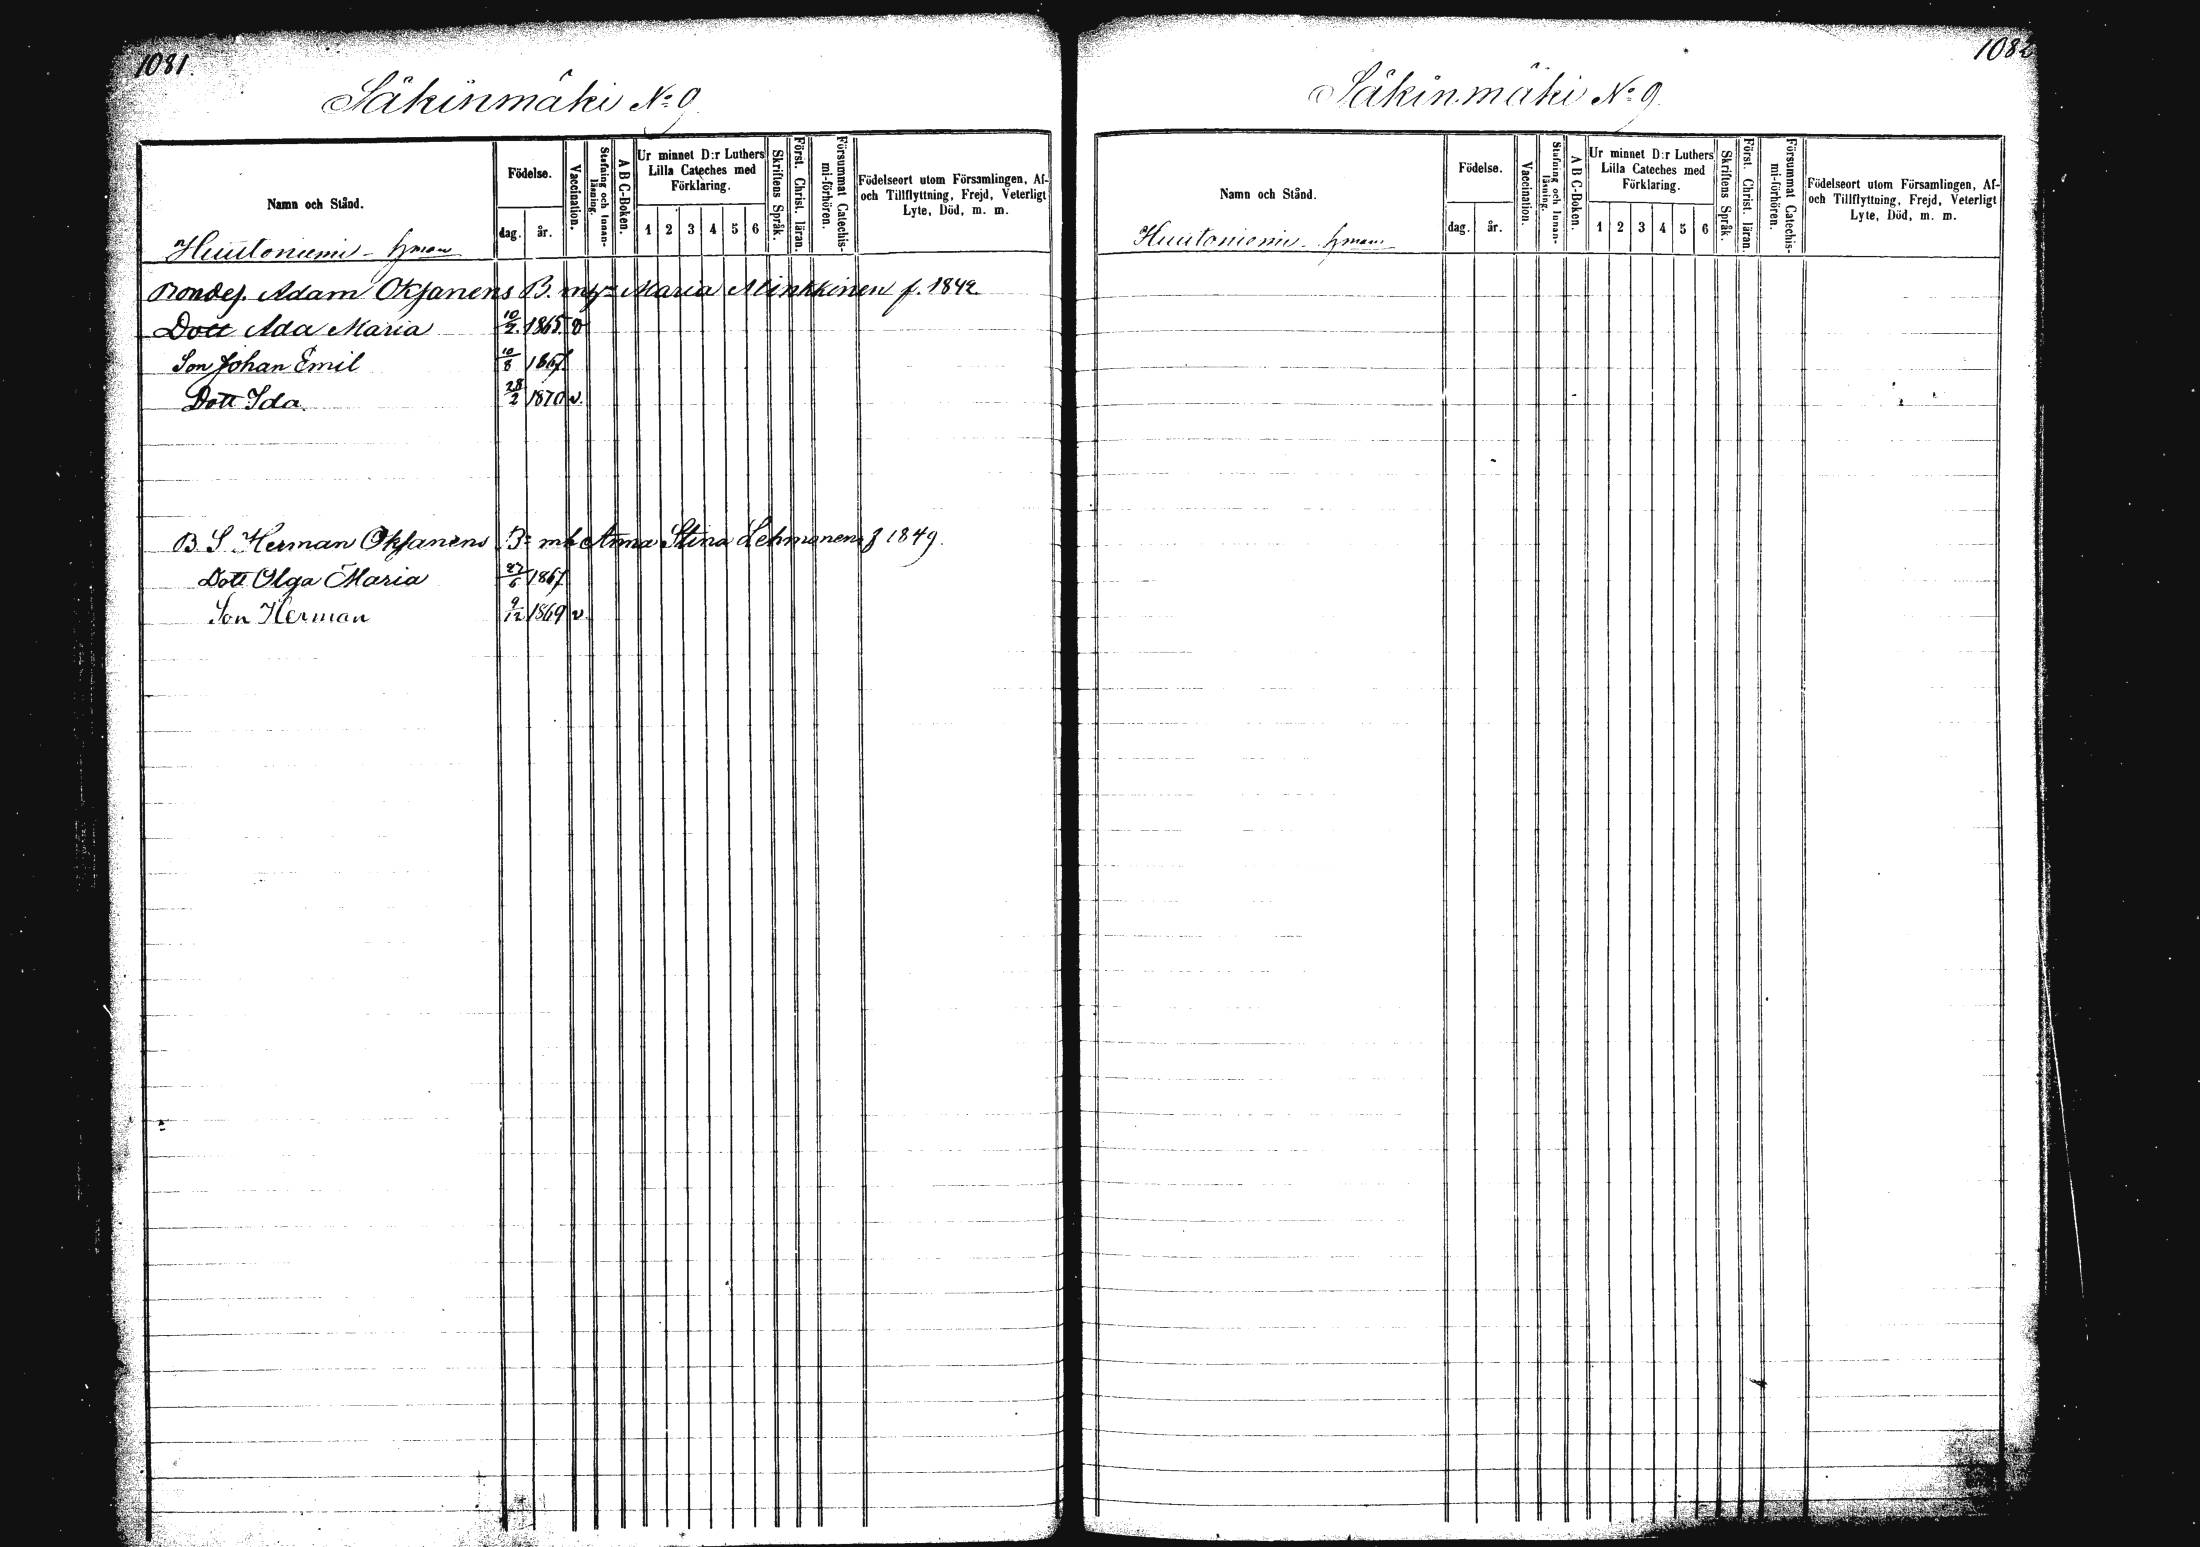 1081.
Säkinmäki No 9
Namn och Stånd.
Födelse.
dag.
år.
Vaccination.
Stafning och Innan-
läsning.
A B C-Boken.
Ur minnet D:r Luthers
Lilla Cateches med
Förklaring.
1 2 3 4 5 6
Skriftens Språk.
Först. Christ. läran.
Försummat Catechis-
mi-förhören.
Födelseort utom Församlingen, Af-
och Tillflyttning, Frejd, Veterligt
Lyte, Död, m. m.
Huutoniemi
Bondes. Adam Oksanens B. Maria Minkkinen f. 1842
Dott Ada Maria 10/2 1865 v
Son Johan Emil 10/8 1867.
Dott Ida. 28/2 1870 v.
B. S Herman Oksanens B: Anna Stina Lehmonen f 1849.
Dott Olga Maria 27/6 1867
Son Herman 9/12 1869 v
1082
Säkinmäki No 9
Namn och Stånd.
Födelse.
dag.
år.
Vaccination.
Stafning och Innan-
läsning.
A B C-Boken.
Ur minnet D:r Luthers
Lilla Cateches med
Förklaring.
1 2 3 4 5 6
Skriftens Språk.
Först. Christ. läran.
Försummat Catechis-
mi-förhören.
Födelseort utom Församlingen, Af-
och Tillflyttning, Frejd, Veterligt
Lyte, Död, m. m.
Huutoniemi